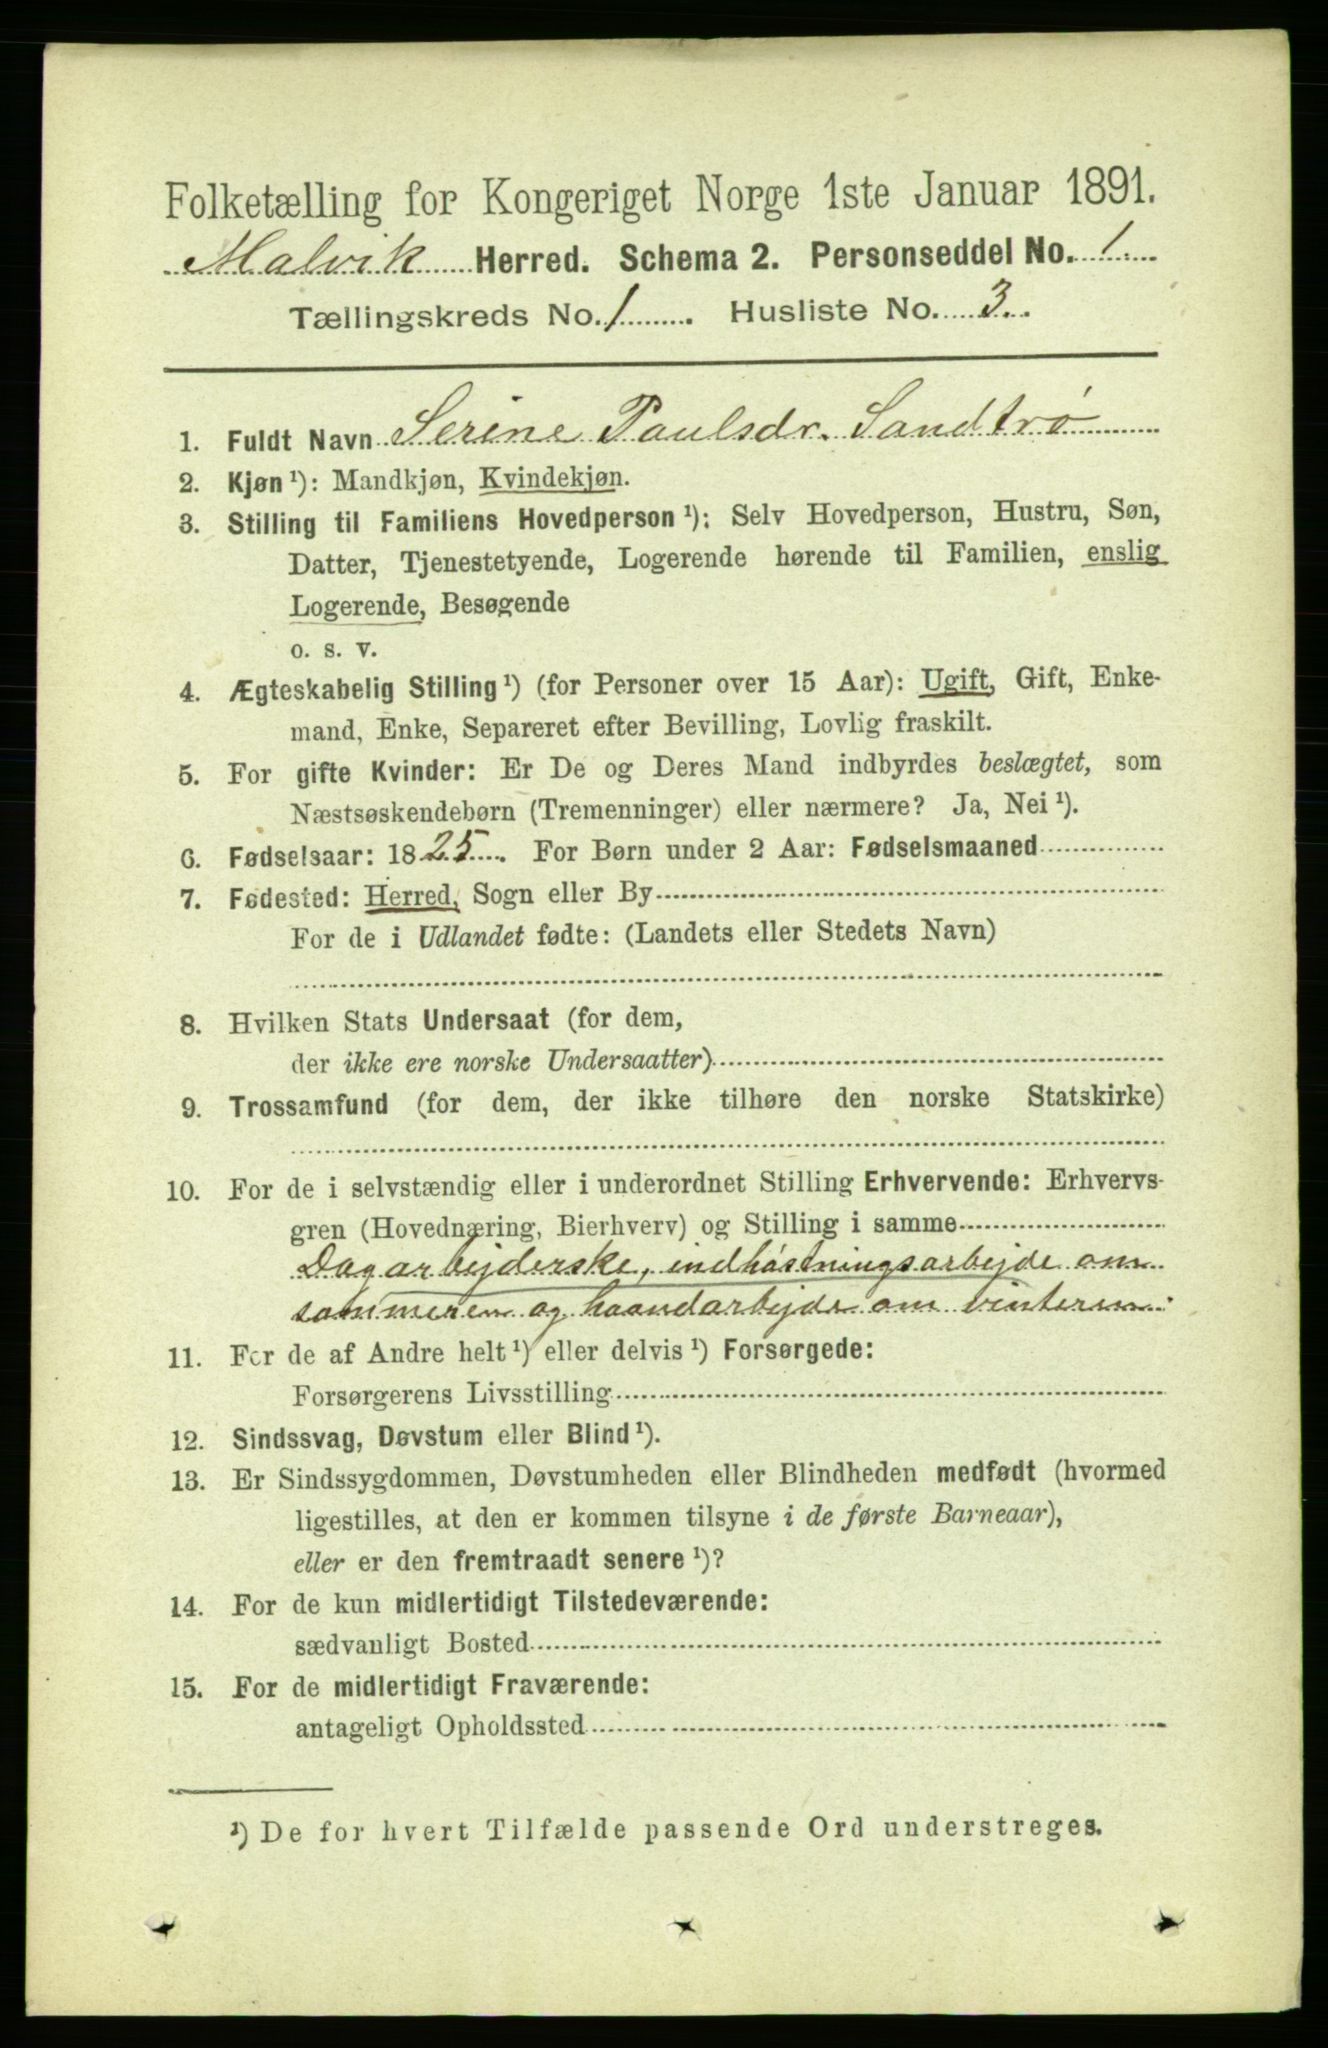 Folketælling for Kongeriget Norge 1ste Januar 1891.
Malvik Herred. Schema 2. Personseddel No. 1.
Tællingskreds No. 1. Husliste No. 3.
1. Fuldt Navn Serine Paulsdr. Sandtrø
2. Kjøn ¹): Mandkjøn, Kvindekjøn.
3. Stilling til Familiens Hovedperson ¹): Selv Hovedperson, Hustru, Søn,
Datter, Tjenestetyende, Logerende hørende til Familien, enslig
Logerende, Besøgende
o. s. v.
4. Ægteskabelig Stilling ¹) (for Personer over 15 Aar): Ugift, Gift, Enke-
mand, Enke, Separeret efter Bevilling, Lovlig fraskilt.
5. For gifte Kvinder: Er De og Deres Mand indbyrdes beslægtet, som
Næstsøskendebørn (Tremenninger) eller nærmere? Ja, Nei ¹).
6. Fødselsaar: 1825. For Børn under 2 Aar: Fødselsmaaned
7. Fødested: Herred, Sogn eller By
For de i Udlandet fødte: (Landets eller Stedets Navn)
8. Hvilken Stats Undersaat (for dem,
der ikke ere norske Undersaatter)
9. Trossamfund (for dem, der ikke tilhøre den norske Statskirke)
10. For de i selvstændig eller i underordnet Stilling Erhvervende: Erhvervs-
gren (Hovednæring, Bierhverv) og Stilling i samme
Dagarbejderske, indhøstningsarbejde om
sommeren og haandarbejde om vinteren.
11. For de af Andre helt ¹) eller delvis ¹) Forsørgede:
Forsørgerens Livsstilling
12. Sindssvag, Døvstum eller Blind ¹).
13. Er Sindssygdommen, Døvstumheden eller Blindheden medfødt (hvormed
ligestilles, at den er kommen tilsyne i de første Barneaar),
eller er den fremtraadt senere ¹)?
14. For de kun midlertidigt Tilstedeværende:
sædvanligt Bosted
15. For de midlertidigt Fraværende:
antageligt Opholdssted
¹) De for hvert Tilfælde passende Ord understreges.